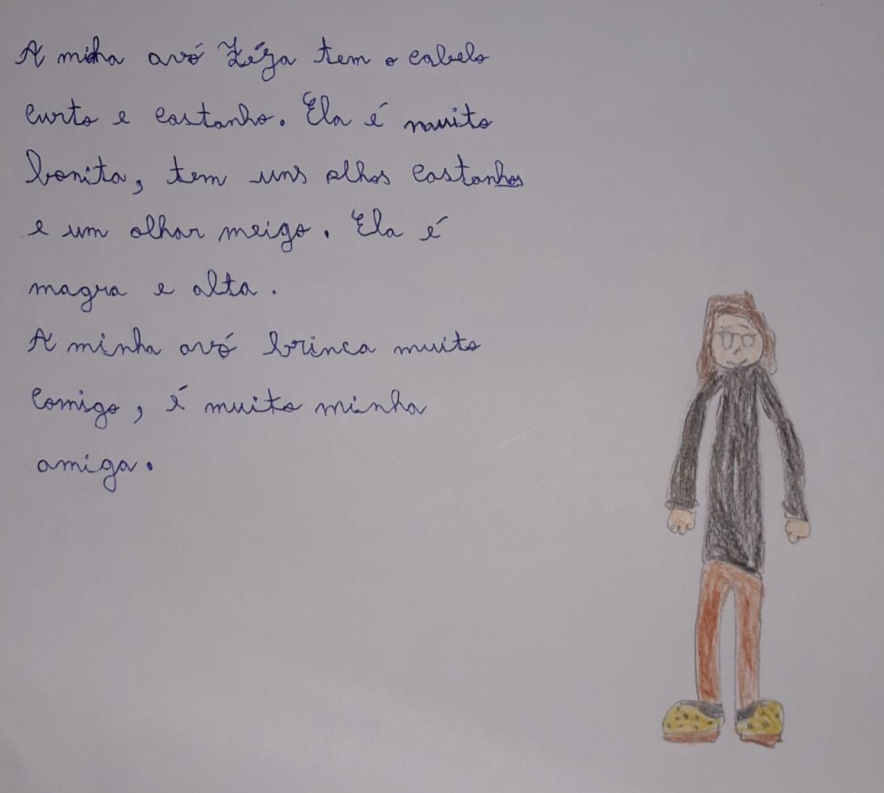 A minha avó Zéza tem o cabelo
curto e castanho. Ela é muito
bonita, tem uns olhos castanhos
e um olhar meigo. Ela é
magra e alta.
A minha avó brinca muito
comigo, é muito minha
amiga.